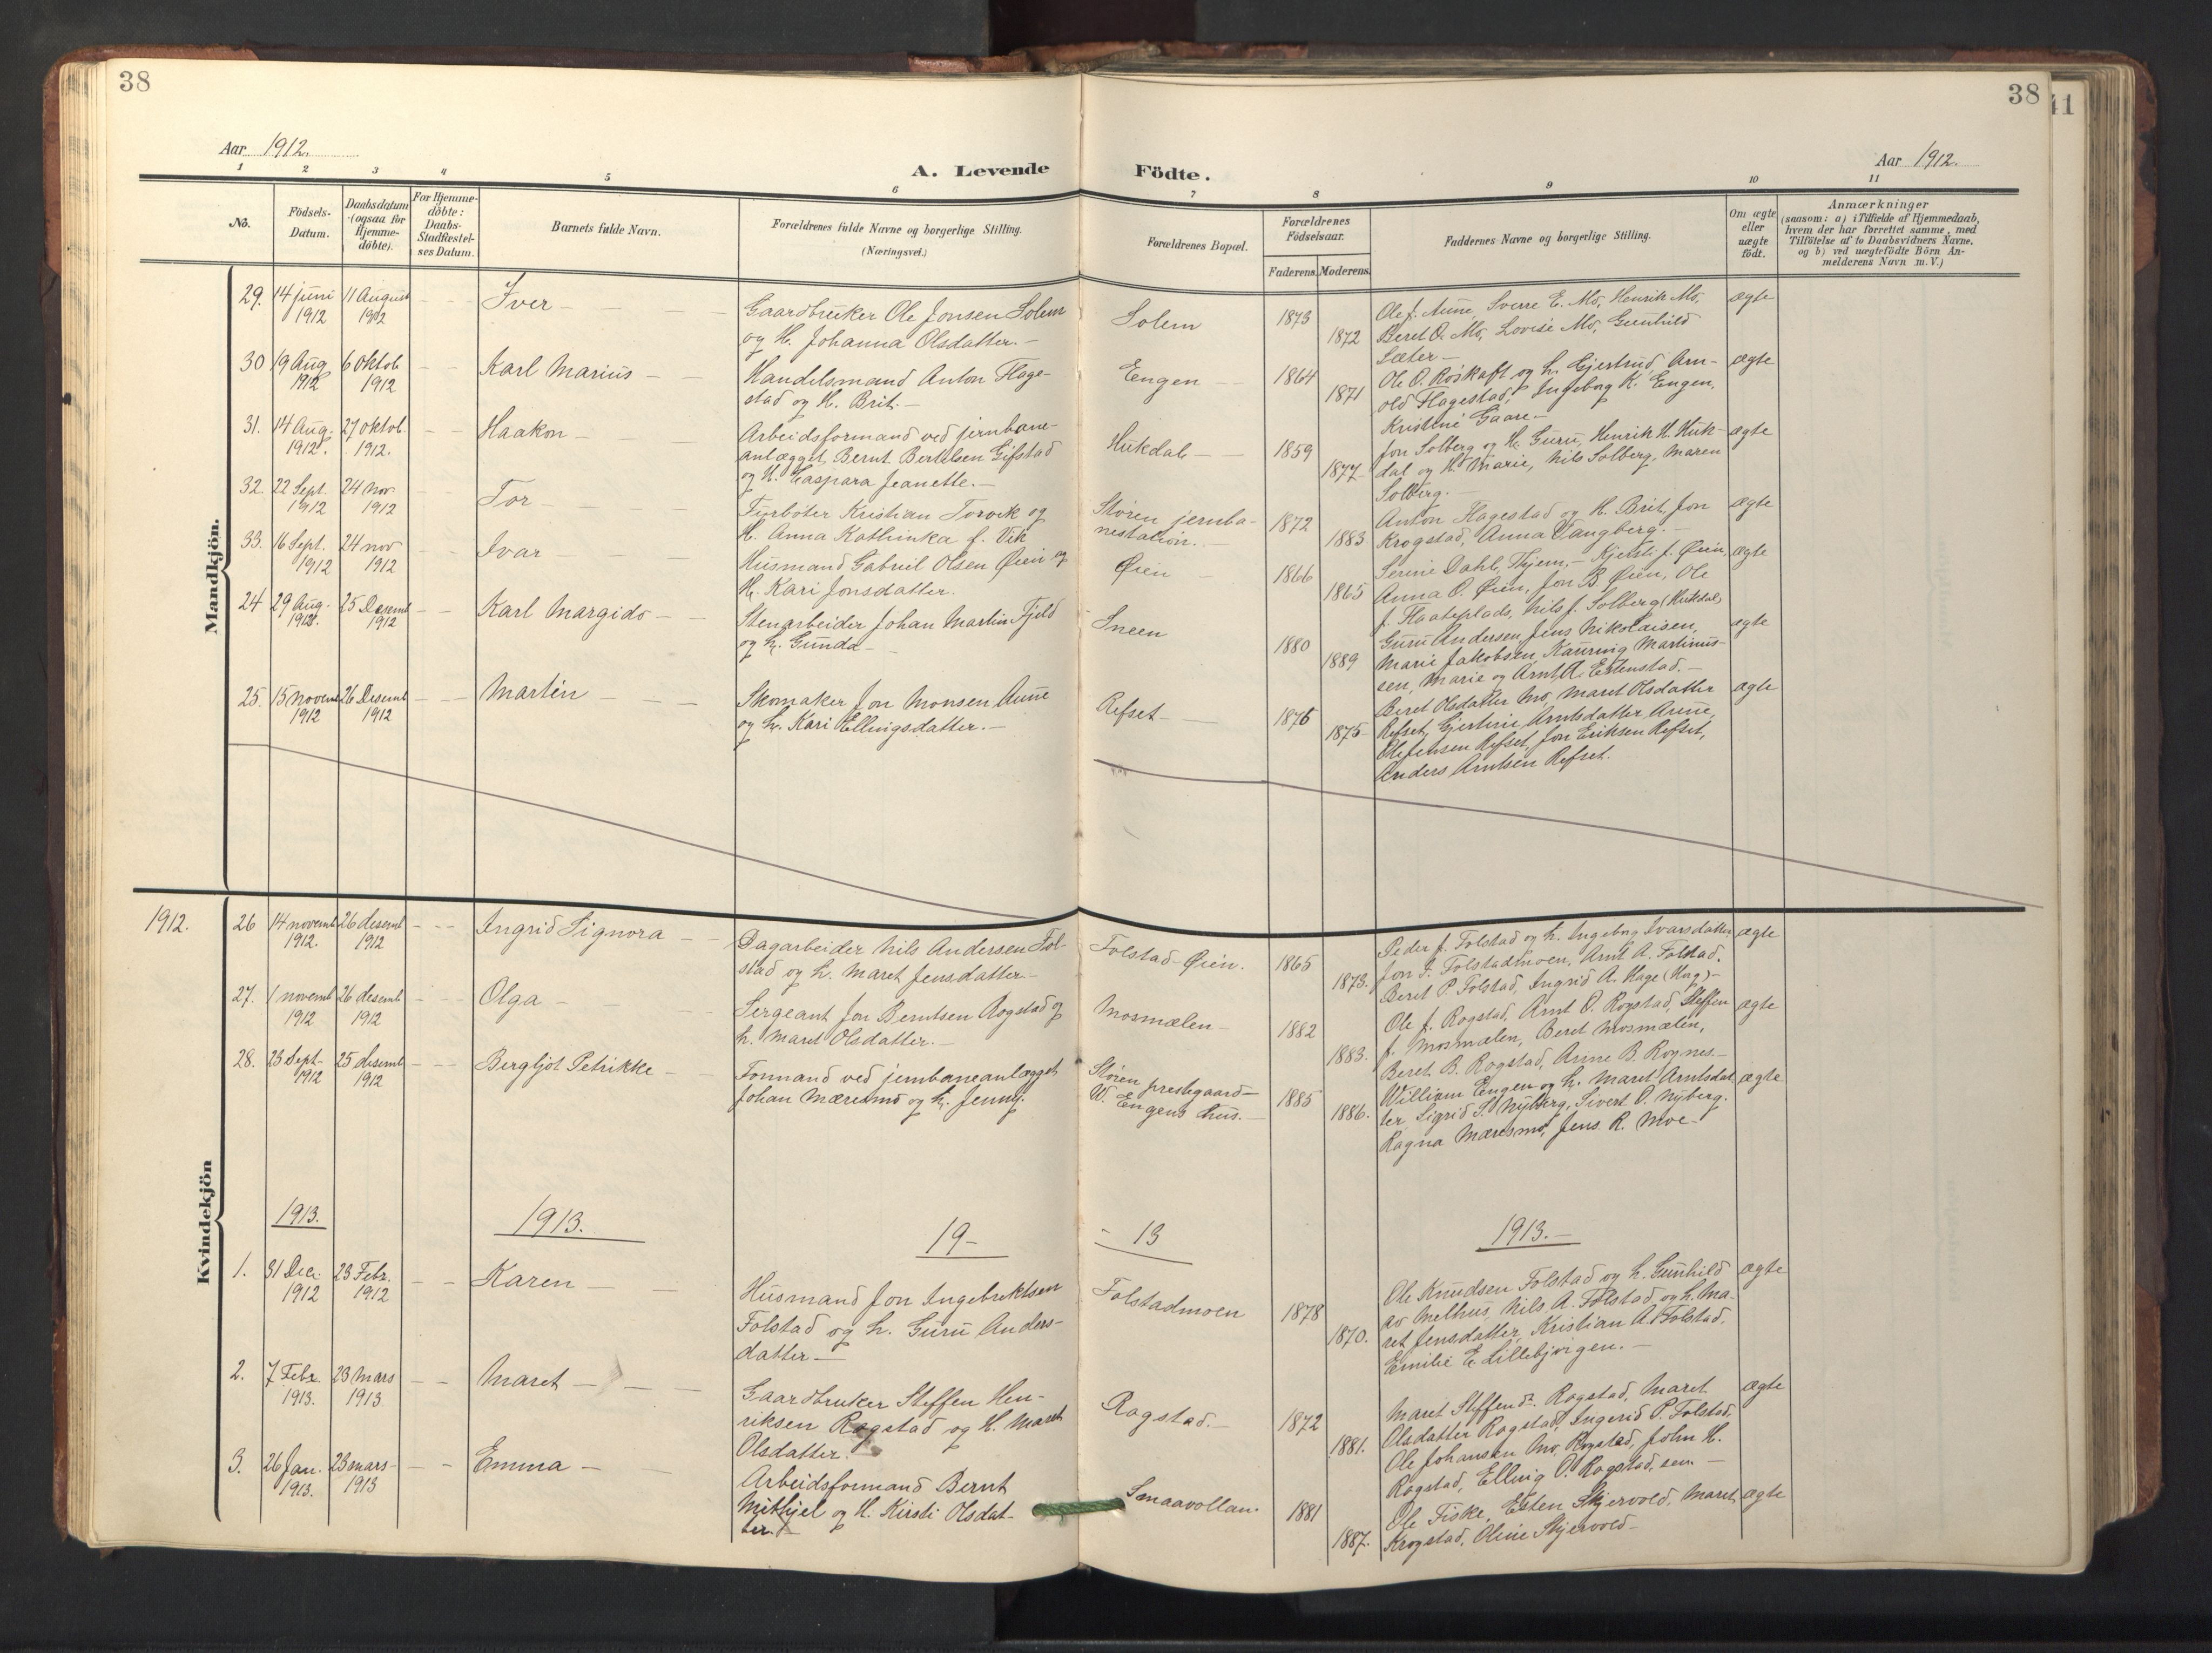 38
38
41
Aar 1912.
A. Levende Födte.
Aar 1912.
1 2 3 4 5 6 7 8 9 10 11
No.
Födsels-
Datum.
Daabsdatum
(ogsaa for
Hjemme-
döbte).
For Hjemme-
döbte:
Daabs-
Stadfæstel-
ses Datum.
Barnets fulde Navn.
Forældrenes fulde Navne og borgerlige Stilling.
(Næringsvei.)
Forældrenes Bopæl.
Forældrenes
Födselsaar.
Faderens. Moderens.
Faddernes Navne og borgerlige Stilling.
Om ægte
eller
uægte
födt.
Anmærkninger
(saasom: a) i Tilfælde af Hjemmedaab,
hvem der har forrettet samme, med
Tilföielse af to Daabsvidners Navne,
og b) ved uægtefödte Börn An-
melderens Navn m. V.)
Mandkjön.
29. 14 juni 1912
11 August 1912
Iver
Gaardbruker Ole Jonsen Solem
og H. Johanna Olsdatter.
Solem
1873
1872
Ole J. Aune, Sverre E. Mo, Henrik Mo,
Beret O. Mo, Lovise Mo, Gunhild
Sæter
ægte
30 19 Aug 1912
6 Oktob 1912
Karl Marius
Handelsmand Anton Flage-
stad og H. Brit.
Eengen
1864
1871
Ole O. Röskaft og h. Gjertrud, Arn-
old Flagestad, Ingeborg K. Engen,
Kristine Gaare
ægte
31. 14 Aug. 1912.
27 oktob. 1912.
Haakon
Arbeidsformand ved jernbane-
anlægget Bernt Bertelsen Gifstad
og H. Caspara Jeanette.
Hukdal
1859
1877
Jon Solberg og H. Guru, Henrik H. Huk-
dal og H. Marie, Nils Solberg, Maren
Solberg.
ægte
32. 22 Sept. 1912
24 Nov. 1912
Tor
Fyrböter Kristian Torvik og
H. Anna Kathinka f. Vik
Stören jernba-
nestation.
1872
1883
Anton Flagestad og H. Brit, Jon
Krogstad, Anna Vangberg.
ægte
33. 16 Sept. 1912
24 nov 1912
Ivar
Husmand Gabriel Olsen Øien og
H. Kari Jonsdatter.
Øien
1866
1865
Serine Dahl, Hjem, Kjersti J. Øien,
Anna O. Øien, Jon B. Øien, Ole
J. Haateplads, Nils J. Solberg (Hukdal)
ægte
24 29 Aug. 1912.
25 Desemb 1912
Karl Margido
Stenarbeider Johan Martin Fjeld
og h. Gunda
Sneen
1880
1889
Guru Andersen, Jens Nikolaisen,
Marie Jakobsen, Martinus-
sen, Marie og Arnt A. Estenstad.
ægte
25. 15 novemb 1912
26 Desemb 1912
Martin
Skomaker Jon Monsen Aune
og h. Kari Ellingsdatter.
Refset
1876
1875
Beret Olsdatter Mo, Maret Olsdatter
Refset, Gjertine Arntsdatter Aune,
Ole Jensen Refset, Jon Eriksen Refset,
Anders Arntsen Refset.
ægte
Kvindekjön
1912.
26 14 novemb 1912.
26 desemb 1912
Ingrid Signora
Dagarbeider Nils Andersen Fol-
stad og h. Maret Jensdatter
Folstad-Øien.
1865
1873.
Peder J. Folstad og h. Ingeborg Ivarsdatter,
Jon I. Folstadmoen, Arnt A. Folstad,
Beret P. Folstad, Ingrid A. Hage (Hug)
ægte
27. 1 novemb 1912
26 desemb 1912
Olga
Sergeant Jon Berntsen Rogstad og
h. Maret Olsdatter.
Mosmælen
1882
1883.
Ole J. Rogstad, Arnt O. Rogstad, Steffen
J. Mosmælen, Beret Mosmælen,
Beret B. Rogstad, Anne B. Rognes
ægte
28. 23 Sept 1912
25 desemb 1912
Bergljot Petrikke
Formand ved jernbaneanlægget
Johan Mæresmo og h. Jenny.
Stören prestegaard
W. Engens hus.
1885
1886.
William Engen og h. Maret Arntsdat
ter, Sigrid S. Nyberg, Sivert O. Nyberg.
Ragna Mæresmo, Jens R. Moe
ægte
1913.
1913.
19 - 13
1913.
1. 31 Dec. 1912
23 Febr. 1912
Karen
Husmand Jon Ingebriktsen
Folstad og h. Guru Anders-
datter
Folstadmoen
1878
1870.
Ole Knudsen Folstad og h. Gunhild
av Melhus, Nils A. Folstad og h. Ma-
ret Jensdatter, Kristian A. Folstad,
Emilie E. Lillebjørgen.
ægte
2. 7 Febr. 1913.
23 Mars 1913
Maret
Gaardbruker Steffen Hen-
riksen Rogstad og H. Maret
Olsdatter.
Rogstad.
1872
1881.
Maret Steffensd. Rogstad, Maret
Olsdatter Rogstad, Ingerid P. Folstad,
Ole Johansen Mo, Rogstad, John H.
Rogstad, Elling O. Rogstad, sen
ægte
3. 26 Jan. 1913.
23 mars 1913
Emma
Arbeidsformand Bernt
Mithjel og H. Kirsti Olsdat-
ter.
Smaavollan.
1881
1887.
Ole Fiske, Esten Skjervold, Maret
Krogstad, Oline Skjervold
ægte